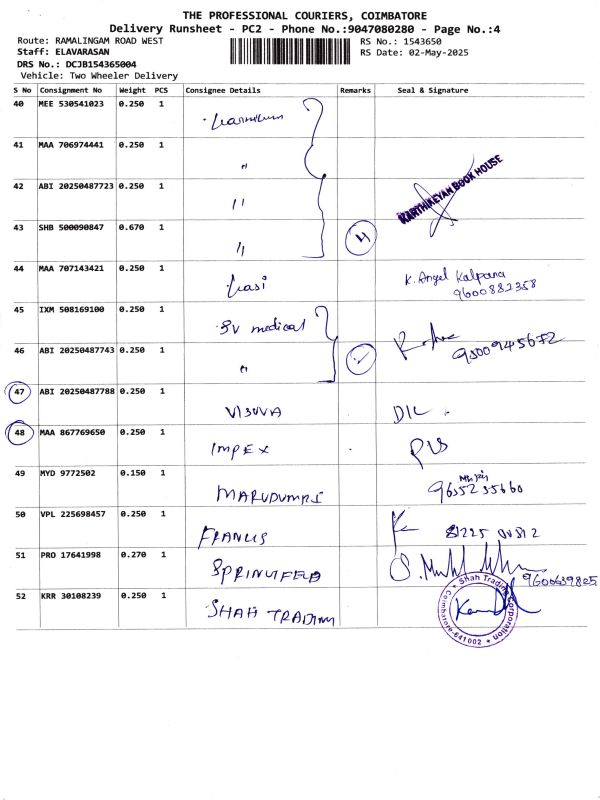 THE PROFESSIONAL COURIERS, COIMBATORE
Delivery Runsheet - PC2 - Phone No.:9047080280 - Page No.:4
Route: RAMALINGAM ROAD WEST
RS No.: 1543650
Staff: ELAVARASAN
RS Date: 02-May-2025
DRS No.: DCJB154365004
Vehicle: Two Wheeler Delivery
S No Consignment No Weight PCS Consignee Details Remarks Seal & Signature
40 MEE 530541023 0.250 1
41 MAA 706974441 0.250 1 "
42 ABI 20250487723 0.250 1 "
KARTHIKEYAN BOOK HOUSE
43 SHB 500090847 0.670 1 " 4
44 MAA 707143421 0.250 1 K. Angel Kalpana
9600882358
45 IXM 508169100 0.250 1 SV medical
46 ABI 20250487743 0.250 1 "
47 ABI 20250487788 0.250 1 VISUVA
48 MAA 867769650 0.250 1 IMPEX
49 MYD 9772502 0.150 1
50 VPL 225698457 0.250 1 FRANCIS
51 PRO 17641998 0.270 1 SPRINGFELD
9600639805
52 KRR 30108239 0.250 1 SHAH TRADING
Shah Trading Corporation
Coimbatore-641002